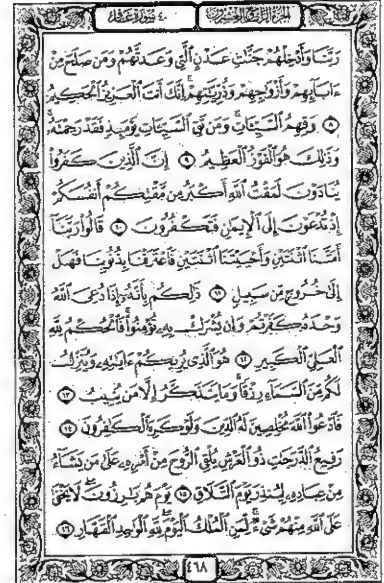 الجزء الرابع والعشرون ٤٠ سورة غافر
رَبَّنَا وَأَدْخِلْهُمْ جَنَّتِ عَدْنٍ ٱلَّتِى وَعَدتَّهُمْ وَمَن صَلَحَ مِنْ
ءَابَآئِهِمْ وَأَزْوَٰجِهِمْ وَذُرِّيَّتِهِمْ إِنَّكَ أَنتَ ٱلْعَزِيزُ ٱلْحَكِيمُ
٨ وَقِهِمُ ٱلسَّيِّـَٔاتِ وَمَن تَقِ ٱلسَّيِّـَٔاتِ يَوْمَئِذٍ فَقَدْ رَحِمْتَهُۥ
وَذَٰلِكَ هُوَ ٱلْفَوْزُ ٱلْعَظِيمُ ٩ إِنَّ ٱلَّذِينَ كَفَرُوا۟
يُنَادَوْنَ لَمَقْتُ ٱللَّهِ أَكْبَرُ مِن مَّقْتِكُمْ أَنفُسَكُمْ
إِذْ تُدْعَوْنَ إِلَى ٱلْإِيمَٰنِ فَتَكْفُرُونَ ١٠ قَالُوا۟ رَبَّنَآ
أَمَتَّنَا ٱثْنَتَيْنِ وَأَحْيَيْتَنَا ٱثْنَتَيْنِ فَٱعْتَرَفْنَا بِذُنُوبِنَا فَهَلْ
إِلَىٰ خُرُوجٍ مِّن سَبِيلٍ ١١ ذَٰلِكُم بِأَنَّهُۥٓ إِذَا دُعِىَ ٱللَّهُ
وَحْدَهُۥ كَفَرْتُمْ وَإِن يُشْرَكْ بِهِۦ تُؤْمِنُوا۟ فَٱلْحُكْمُ لِلَّهِ
ٱلْعَلِىِّ ٱلْكَبِيرِ ١٢ هُوَ ٱلَّذِى يُرِيكُمْ ءَايَٰتِهِۦ وَيُنَزِّلُ
لَكُم مِّنَ ٱلسَّمَآءِ رِزْقًا وَمَا يَتَذَكَّرُ إِلَّا مَن يُنِيبُ ١٣
فَٱدْعُوا۟ ٱللَّهَ مُخْلِصِينَ لَهُ ٱلدِّينَ وَلَوْ كَرِهَ ٱلْكَٰفِرُونَ ١٤
رَفِيعُ ٱلدَّرَجَٰتِ ذُو ٱلْعَرْشِ يُلْقِى ٱلرُّوحَ مِنْ أَمْرِهِۦ عَلَىٰ مَن يَشَآءُ
مِنْ عِبَادِهِۦ لِيُنذِرَ يَوْمَ ٱلتَّلَاقِ ١٥ يَوْمَ هُم بَٰرِزُونَ لَا يَخْفَىٰ
عَلَى ٱللَّهِ مِنْهُمْ شَىْءٌ لِّمَنِ ٱلْمُلْكُ ٱلْيَوْمَ لِلَّهِ ٱلْوَٰحِدِ ٱلْقَهَّارِ ١٦
٤٦٨